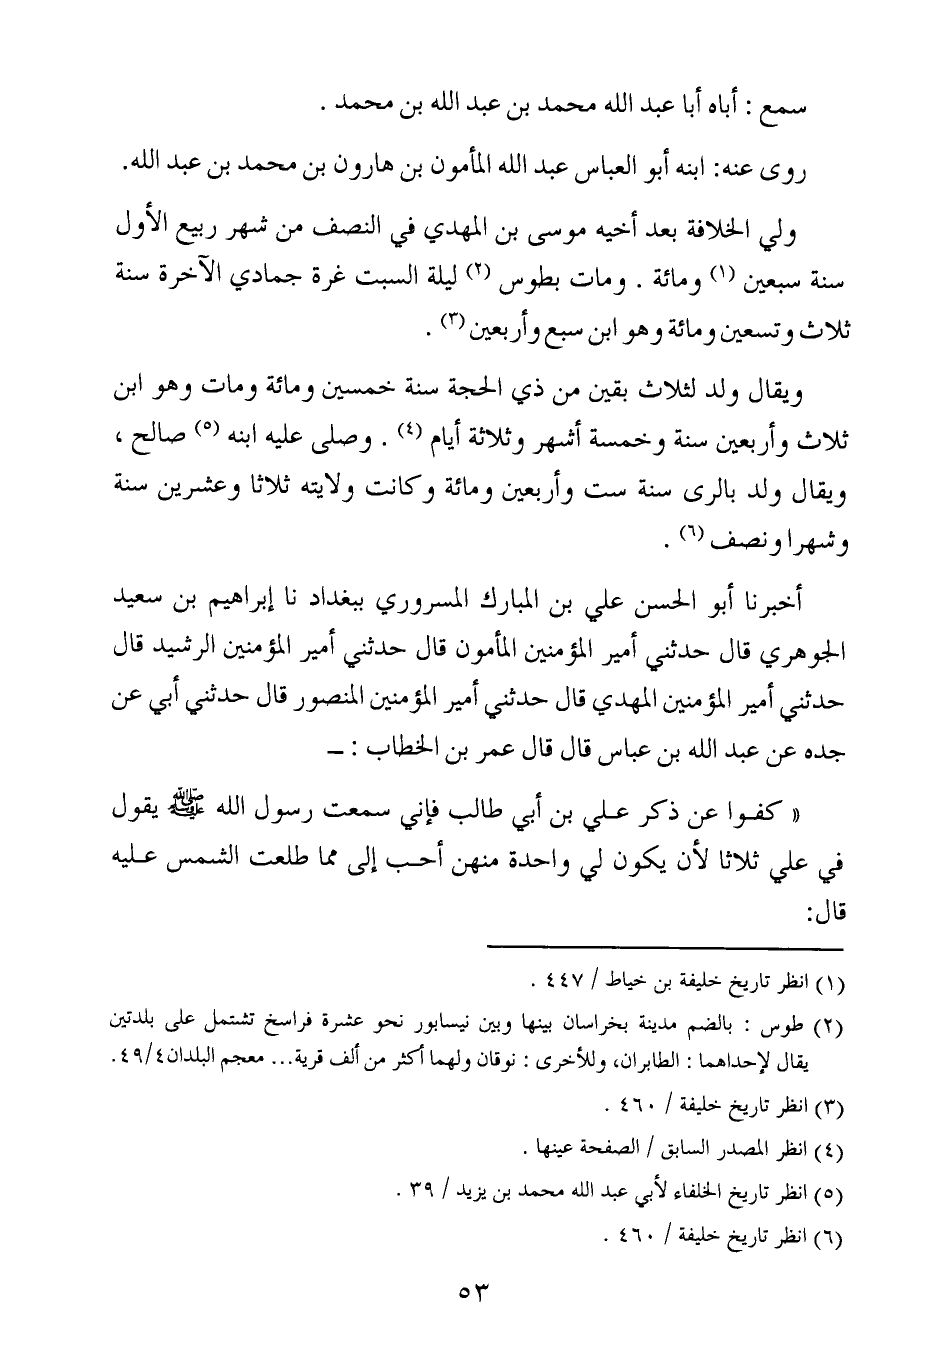 سمع : أباه أبا عبد الله محمد بن عبد الله بن محمد .
روى عنه: ابنه أبو العباس عبد الله المأمون بن هارون بن محمد بن عبد الله.
ولي الخلافة بعد أخيه موسى بن المهدي في النصف من شهر ربيع الأول
سنة سبعين (١) ومائة . ومات بطوس (٢) ليلة السبت غرة جمادي الآخرة سنة
ثلاث وتسعين ومائة وهو ابن سبع وأربعين(٣) .
ويقال ولد لثلاث بقين من ذي الحجة سنة خمسين ومائة ومات وهو ابن
ثلاث وأربعين سنة وخمسة أشهر وثلاثة أيام (٤) . وصلى عليه ابنه (٥) صالح ،
ويقال ولد بالرى سنة ست وأربعين ومائة وكانت ولايته ثلاثا وعشرين سنة
وشهرا ونصف (٦) .
أخبرنا أبو الحسن علي بن المبارك المسروري ببغداد نا إبراهيم بن سعيد
الجوهري قال حدثني أمير المؤمنين المأمون قال حدثني أمير المؤمنين الرشيد قال
حدثني أمير المؤمنين المهدي قال حدثني أمير المؤمنين المنصور قال حدثني أبي عن
جده عن عبد الله بن عباس قال قال عمر بن الخطاب : ـ
« كفوا عن ذكر علي بن أبي طالب فإني سمعت رسول الله ﷺ يقول
في علي ثلاثا لأن يكون لي واحدة منهن أحب إلى مما طلعت الشمس عليه
قال:
(١) انظر تاريخ خليفة بن خياط / ٤٤٧ .
(٢) طوس : بالضم مدينة بخراسان بينها وبين نيسابور نحو عشرة فراسخ تشتمل على بلدتين
يقال لإحداهما : الطابران، وللأخرى : نوقان ولهما أكثر من ألف قرية... معجم البلدان ٤/ ٤٩.
(٣) انظر تاريخ خليفة / ٤٦٠ .
(٤) انظر المصدر السابق / الصفحة عينها .
(٥) انظر تاريخ الخلفاء لأبي عبد الله محمد بن يزيد / ٣٩ .
(٦) انظر تاريخ خليفة / ٤٦٠ .
٥٣